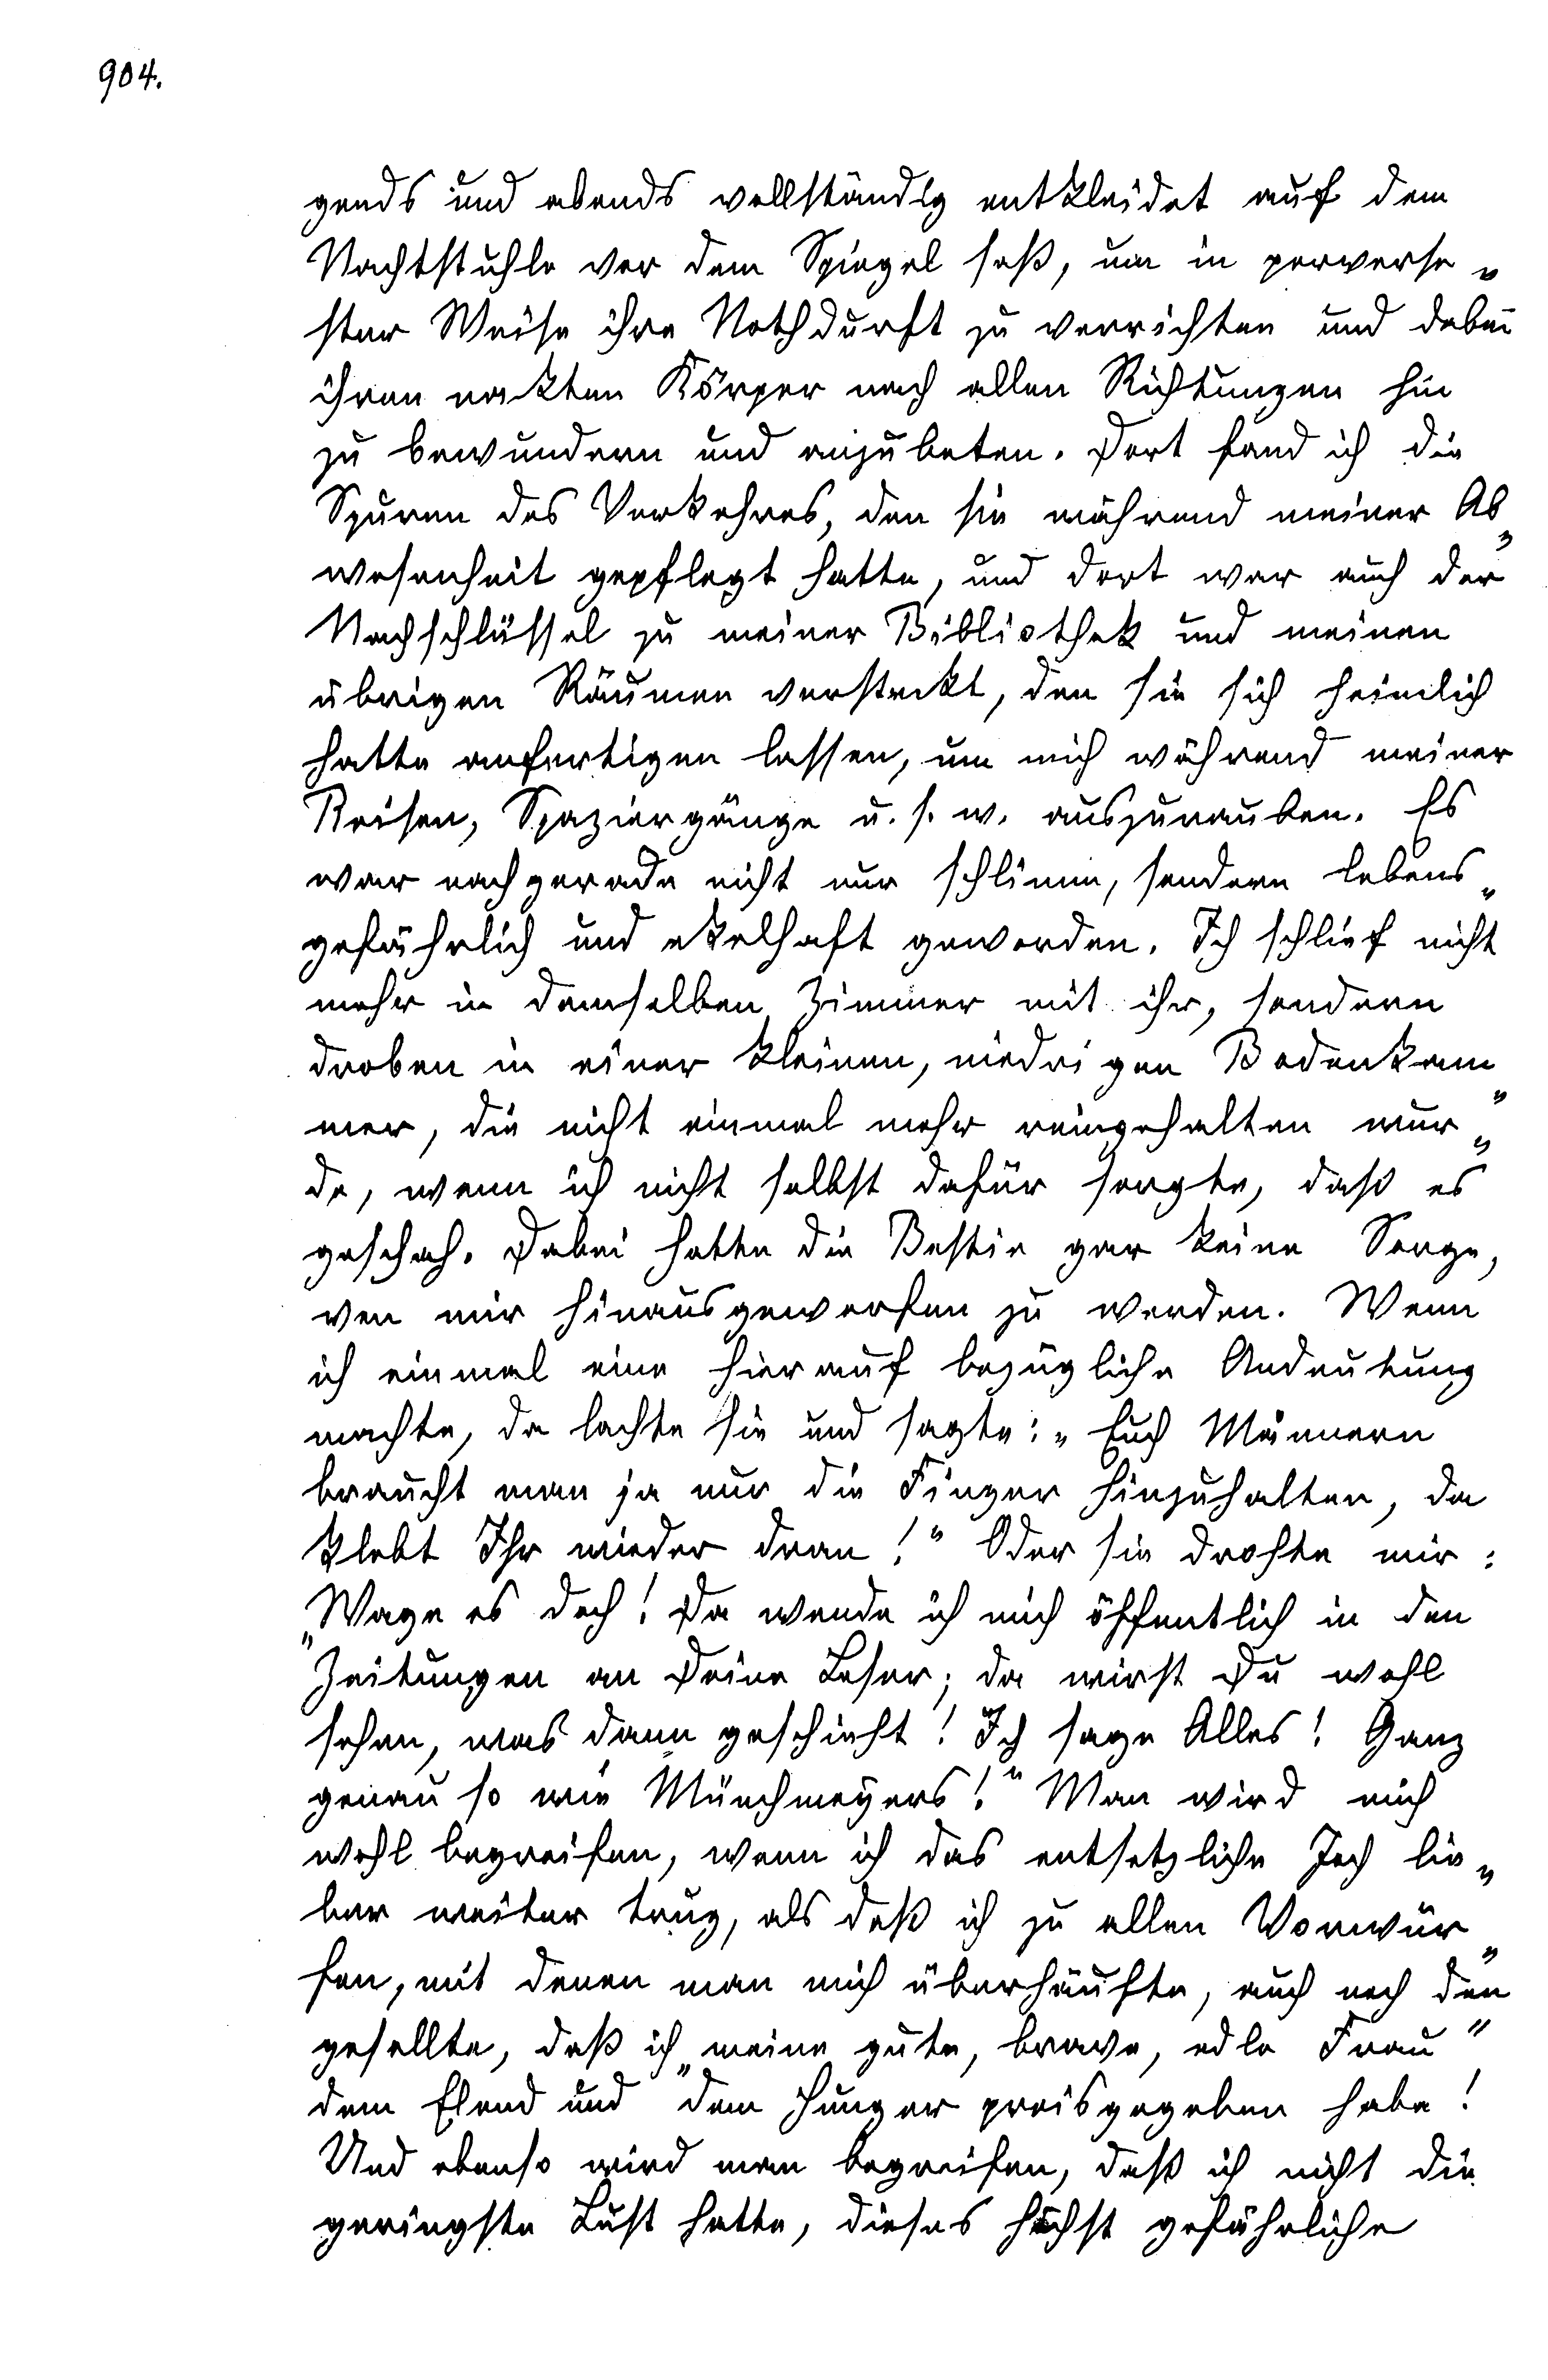 904.
gends und abends vollständig entkleidet auf dem
Nachtstuhle vor dem Spiegel saß, um in perverse„
ster Weise ihre Nothdurft zu verrichten und dabei
ihren nackten Körper nach allen Richtungen hin
zu bewundern und anzubeten. Dort fand ich die
Spuren des Verkehres, den sie während meiner Ab„
wesenheit gepflegt hatte, und dort war auch der
Nachschlüssel zu meiner Bibliothek und meinen
übrigen Räumen versteckt, den sie sich heimlich
hatte anfertigen lassen, um mich während meiner
Reisen, Spaziergänge u. s. w. auszurauben. Es
war nachgerade nicht nur schlimm, sondern lebens„
gefährlich und ekelhaft geworden. Ich schlief nicht
mehr in demselben Zimmer mit ihr, sondern
droben in einer kleinen, niedrigen Bodenkam„
mer, die nicht einmal mehr reingehalten wur„
de, wenn ich nicht selbst dafür sorgte, daß es
geschah. Dabei hatte die Bestie gar keine Sorge,
von mir hinausgeworfen zu werden. Wenn
ich einmal eine hierauf bezügliche Andeutung
machte, da lachte sie und sagte: „Euch Männern
braucht man ja nur die Finger hinzuhalten, da
klebt Ihr wieder dran!“ Oder sie drohte mir:
„Wage es doch! Da wende ich mich öffentlich in den
Zeitungen an Deine Leser; da wirst Du wohl
sehen, was dann geschieht! Ich sage Alles! Ganz
genau so wie Münchmeyers!“ Man wird mich
wohl begreifen, wenn ich das entsetzliche Joch lie„
ber weiter trug, als daß ich zu allen Vorwür„
fen, mit denen man mich überhäufte, auch noch den
gesellte, daß ich „meine gute, brave, edle Frau“
dem Elend und dem Hunger preisgegeben habe!
Und ebenso wird man begreifen, daß ich nicht die
geringste Lust hatte, dieses höchst gefährliche